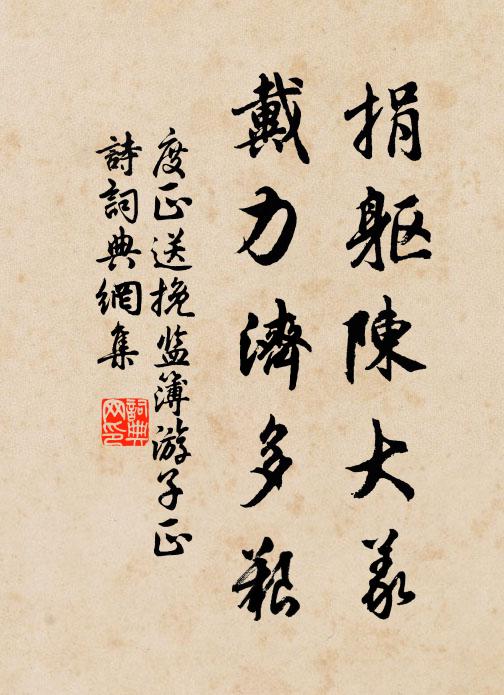 捐躯陳大义
戴力濟多艱
度正送挽监簿游子正
詩詞典網集
詞典网印